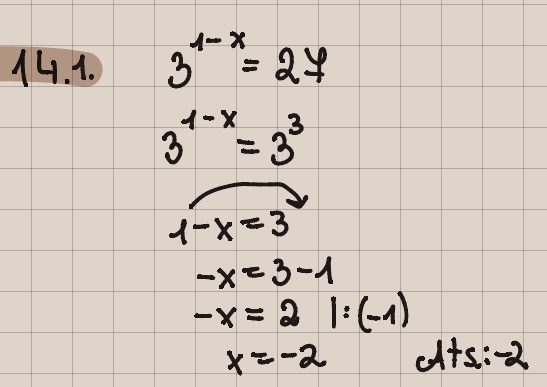 14.1. 3^{1-x} = 27
3^{1-x} = 3^3
1-x = 3
-x = 3-1
-x = 2 |:(-1)
x = -2 Ats.:-2